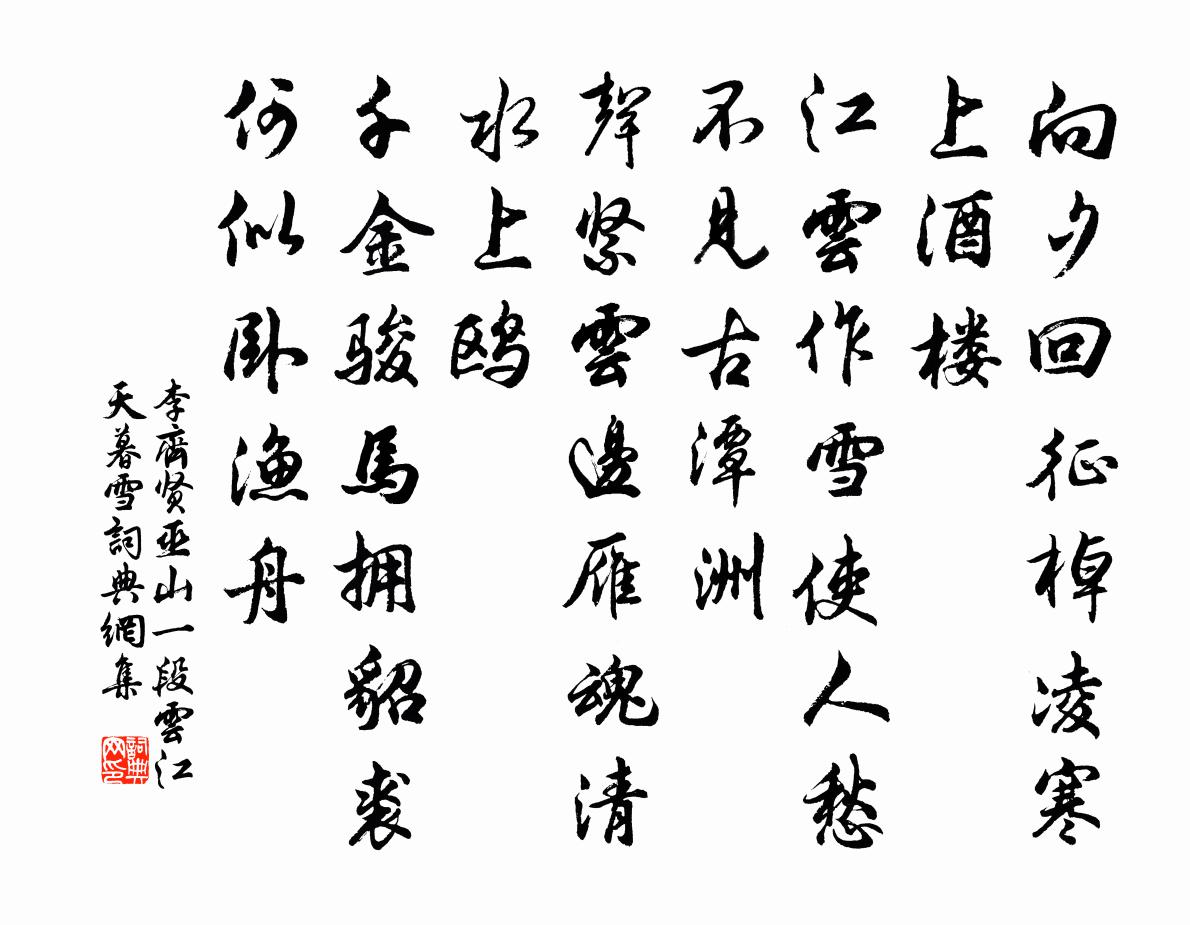 向夕回征棹凌寒
上酒楼
江雲作雪使人愁
不見古潭洲
聲紧雲邊雁魂清
水上鸥
千金骏馬拥貂裘
何似卧漁舟
李齊贤巫山一段雲江
天暮雪詞典網集
詞典網印